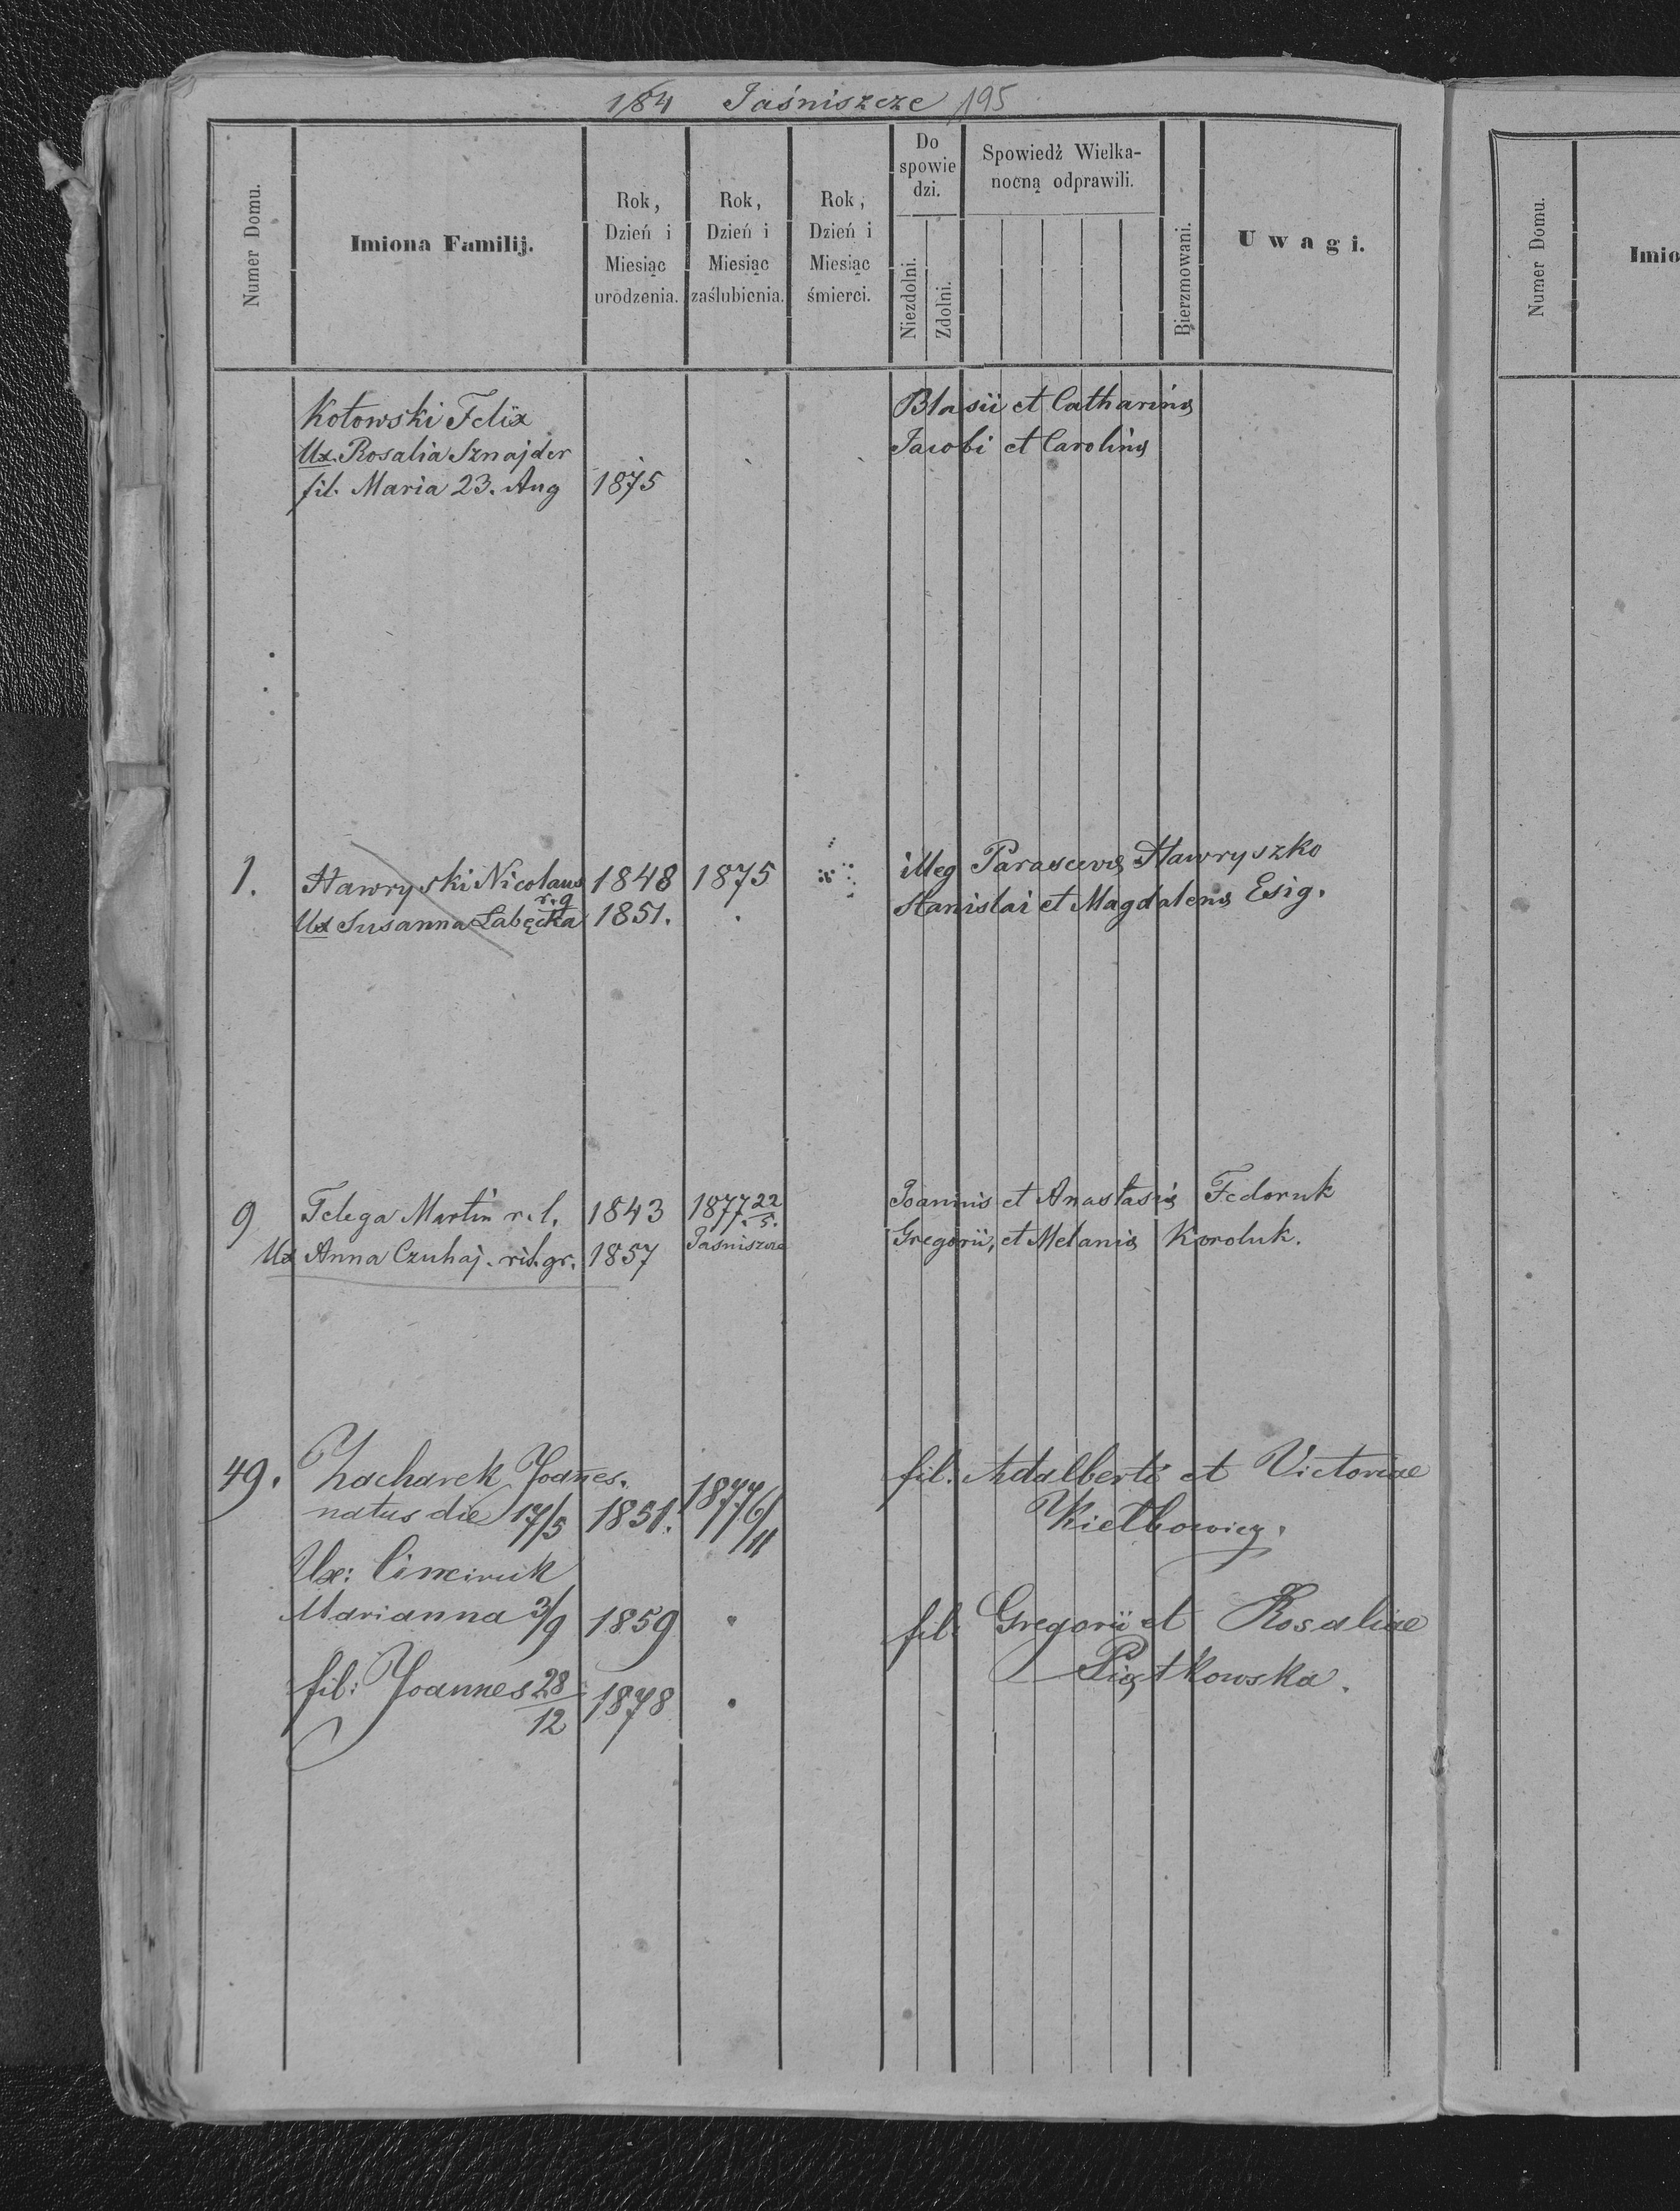 184 Jaśniszcze 195
Numer Domu.
Imiona Familij.
Rok, Dzień i Miesiąc urodzenia.
Rok, Dzień i Miesiąc zaślubienia.
Rok, Dzień i Miesiąc śmierci.
Do spowie dzi.
Niezdolni.
Zdolni.
Spowiedź Wielka-
nocną odprawili.
Bierzmowani.
Uwagi.
Numer Domu.
Imio
Kotowski Felix Blasii et Catharinę
Ux. Rosalia Sznajder Jacobi et Carolinę
fil. Maria 23. Aug 1875
1. Hawryski Nicolaus 1848 1875 illeg Parascevę Hawryszko
r. g
Ux Susanna Łabęcka 1851. Stanislai et Magdalenę Esig.
9 Telega Martin r. l. 1843 1877 22/5. Joannis et Anastasię Fedoruk
Ux Anna Czuhaj. rit. gr. 1857 Jaśniszcze Gregorii, et Melanię Koroluk.
49. Zacharek Joannes. fil. Adalberti et Victoriae
natus die 17/5 1851. 1877 6/11 Kiełbowicz.
Ux:
Marianna 3/9 1859 fil: Gregorii et Rosaliae
Piątkowska.
fil: Joannes 28/12 1878